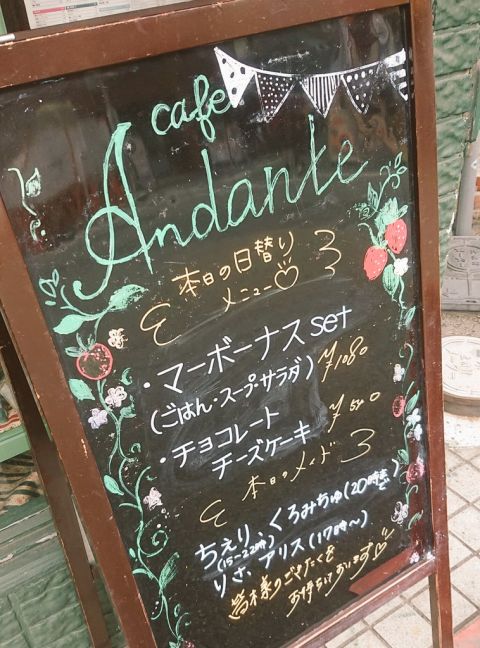 cafe
Andante
本日の日替り
メニュー♡
・マーボーナスset
(ごはん・スープ・サラダ) ¥1080
・チョコレート
チーズケーキ ¥500
本日のメイド
ちえり、くるみちゅ(20時まで)
(15〜22時)
りさ、アリス(17時〜)
皆様のごきたくを
お待ちしております♡